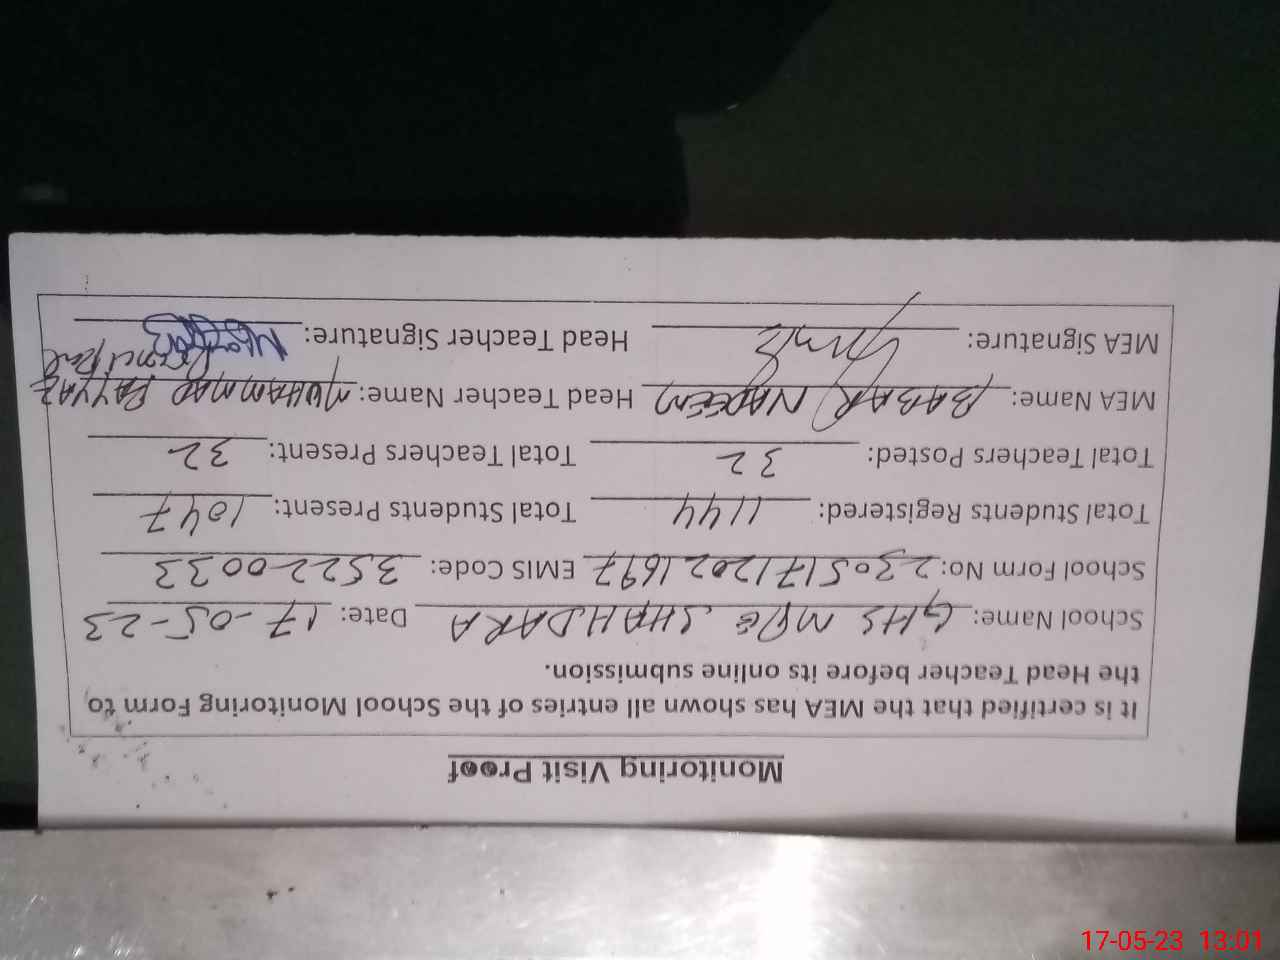 Monitoring Visit Proof
It is certified that the MEA has shown all entries of the School Monitoring Form to
the Head Teacher before its online submission.
School Name: GHS MPG SHAHDARA Date: 17-05-23
School Form No: 23051712021697 EMIS Code: 35220033
Total Students Registered: 1144 Total Students Present: 1047
Total Teachers Posted: 32 Total Teachers Present: 32
MEA Name: BABAR NADEEM Head Teacher Name: MUHAMMAD FAYYAZ
Principal
MEA Signature: Head Teacher Signature:
17-05-23 13:01